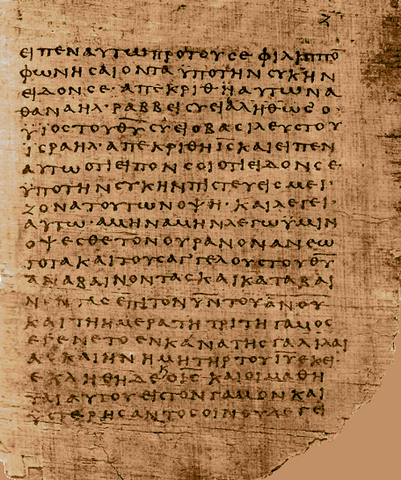 ζ
ΕΙΠΕΝΑΥΤΩΠΡΟΤΟΥϹΕΦΙΛΙΠΠΟ
ΦΩΝΗϹΑΙΟΝΤΑΥΠΟΤΗΝϹΥΚΗΝ
ΕΙΔΟΝϹΕ·ΑΠΕΚΡΙΘΗΑΥΤΩΝΑ
ΘΑΝΑΗΛ·ΡΑΒΒΕΙϹΥΕΙΑΛΗΘΩϹΟ
ΥΙΟϹΤΟΥΘ̅Υ̅ϹΥΕΙΟΒΑϹΙΛΕΥϹΤΟΥ
ΙϹΡΑΗΛ·ΑΠΕΚΡΙΘΗΙ̅Ϲ̅ΚΑΙΕΙΠΕΝ
ΑΥΤΩΟΤΙΕΙΠΟΝϹΟΙΟΤΙΕΙΔΟΝϹΕ·
ΥΠΟΤΗΝϹΥΚΗΝΠΙϹΤΕΥΕΙϹΜΕΙ·
ΖΟΝΑΤΟΥΤΩΝΟΨΗ·ΚΑΙΛΕΓΕΙ·
ΑΥΤΩ·ΑΜΗΝΑΜΗΝΛΕΓΩΫΜΙΝ
ΟΨΕϹΘΕΤΟΝΟΥΡΑΝΟΝΑΝΕΩ
ΓΟΤΑΚΑΙΤΟΥϹΑΓΓΕΛΟΥϹΤΟΥΘ̅Υ̅
ΑΝΑΒΑΙΝΟΝΤΑϹΚΑΙΚΑΤΑΒΑΙ
ΝΟΝΤΑϹΕΠΙΤΟΝΥ̅Ν̅ΤΟΥΑ̅Ν̅ΟΥ
ΚΑΙΤΗΗΜΕΡΑΤΗΤΡΙΤΗΓΑΜΟϹ
ΕΓΕΝΕΤΟΕΝΚΑΝΑΤΗϹΓΑΛΙΛΑΙ
ΑϹΚΑΙΗΝΗΜΗΤΗΡΤΟΥΙ̅Υ̅ΕΚΕΙ·
ΕΚΛΗΘΗΔΕΟΙ̅Ϲ̅ΚΑΙΟΙΜΑΘΗ
ΤΑΙΑΥΤΟΥΕΙϹΤΟΝΓΑΜΟΝΚΑΙ
ΥϹΤΕΡΗϹΑΝΤΟϹΟΙΝΟΥΛΕΓΕΙ